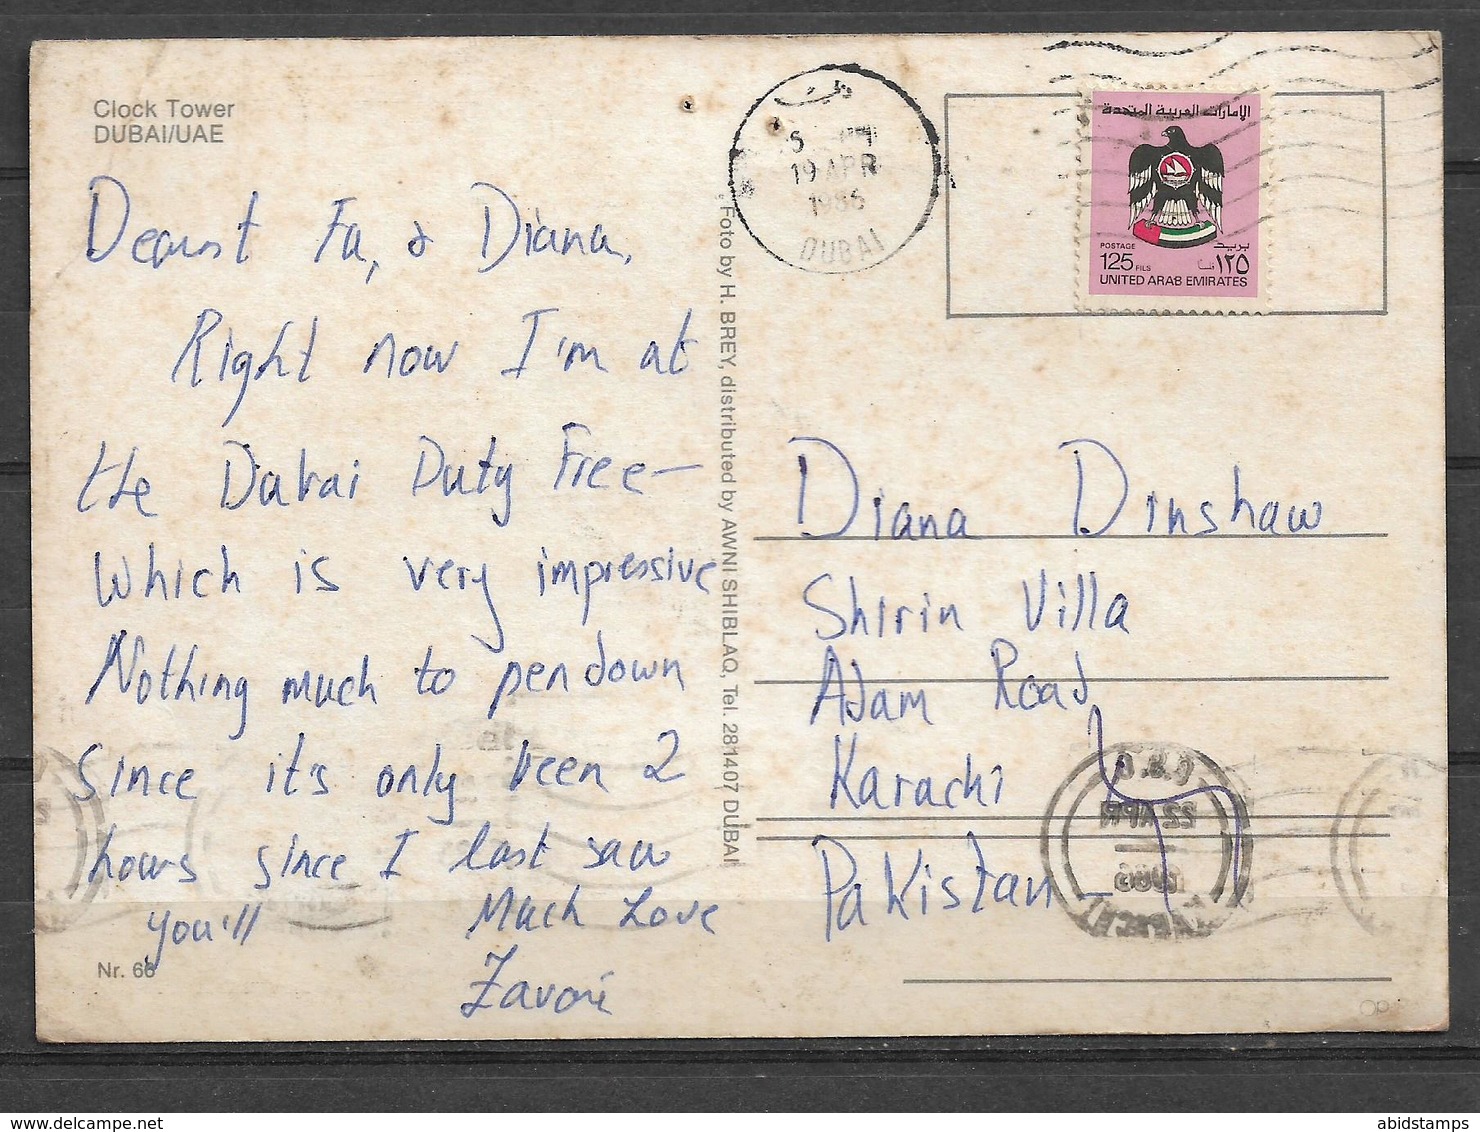 Clock Tower
DUBAI/UAE
Dearest Fa, & Diana,
Right now I'm at
the Dubai Duty Free—
Which is very impressive
Nothing much to pen down
since it's only been 2
hours since I last saw
you'll Much Love
Zavori
Nr. 66
Foto by H. BREY, distributed by AWNI SHIBLAQ, Tel. 281407 DUBAI
دبي
19 APR
1986
DUBAI
الإمارات العربية المتحدة
POSTAGE بريد
125 FILS ١٢٥ فلساً
UNITED ARAB EMIRATES
Diana Dinshaw
Shirin Villa
Adam Road
Karachi
Pakistan
22 APR
abidstamps